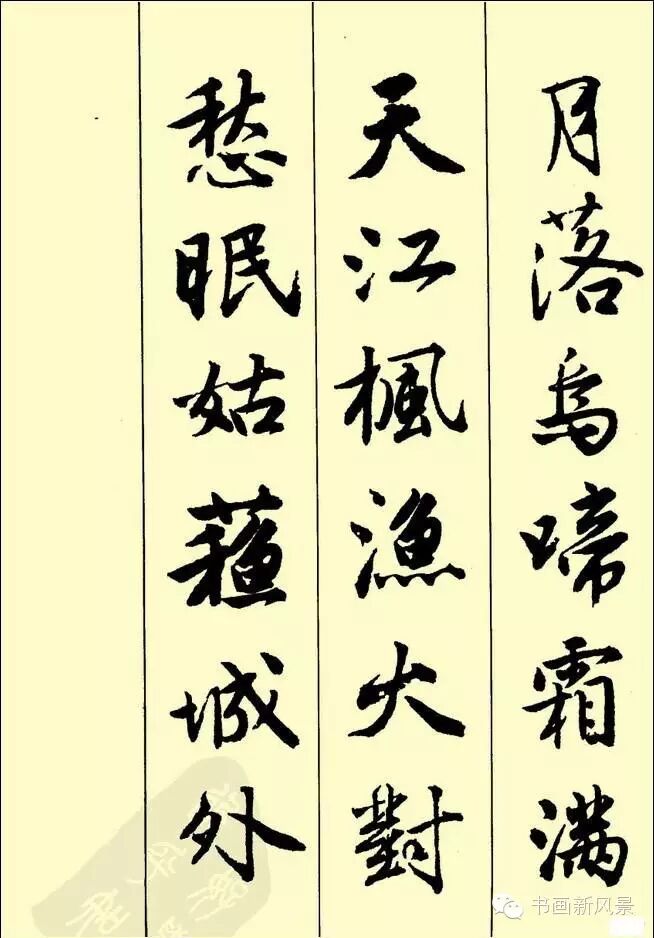 月落烏啼霜満
天江楓漁火對
愁眠姑蘓城外
书画新风景